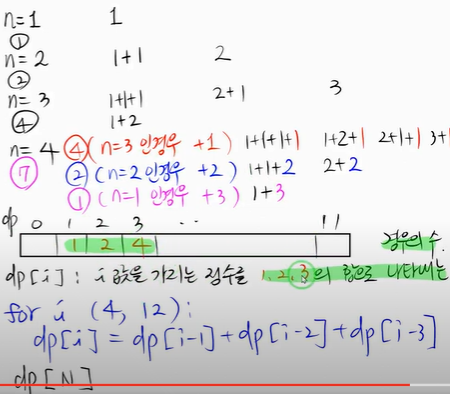 n=1 1
①
n=2 1+1 2
②
n=3 1+1+1 2+1 3
④ 1+2
n=4 ④ (n=3 인경우 +1) 1+1+1+1 1+2+1 2+1+1 3+
⑦ ② (n=2 인경우 +2) 1+1+2 2+2
① (n=1 인경우 +3) 1+3
dp 0 1 2 3 ·· 11
1 2 4 경우의 수.
dp[i] : i 값을 가리는 정수를 1, 2, 3의 합으로 나타내는
for i (4, 12):
dp[i] = dp[i-1]+dp[i-2]+dp[i-3]
dp[N]